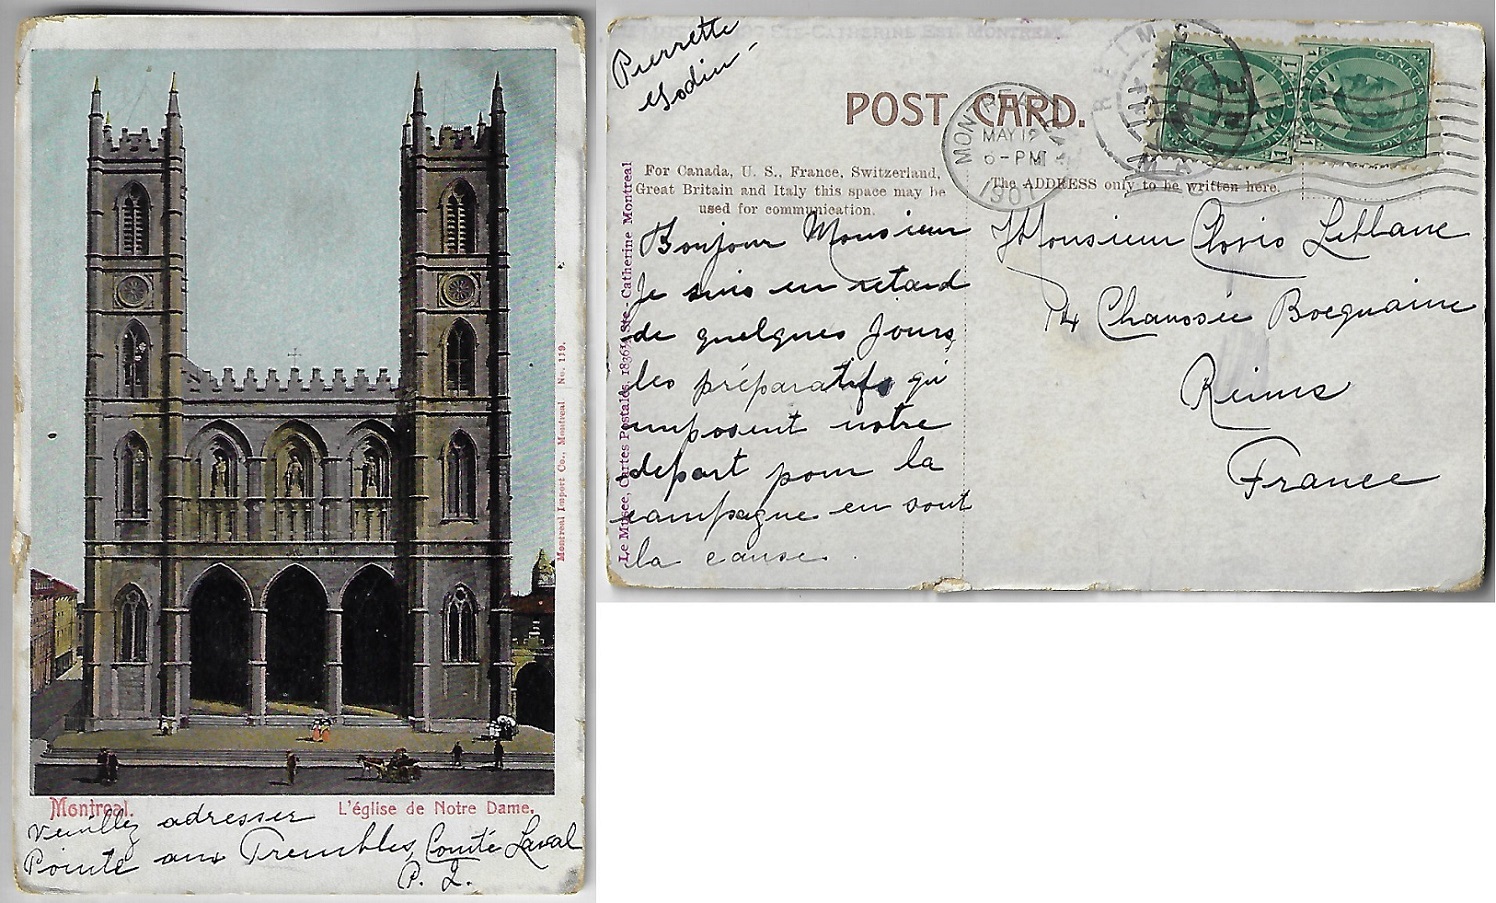 Montreal Import Co., Montreal No. 119.
Montreal. L'église de Notre Dame.
Veuillez adresser
Pointe aux Trembles, Comté Laval
P. Q.
Pierrette
Godin
POST CARD.
MONTREAL
MAY 12
6-PM
1907
For Canada, U. S., France, Switzerland,
Great Britain and Italy this space may be
used for communication.
The ADDRESS only to be written here.
Le Musée, Cartes Postales, 1836½ Ste-Catherine Montreal
Bonjour Monsieur
Je suis en retard
de quelques jours,
les préparatifs qi
imposent notre
depart pour la
campagne en sont
la cause.
Monsieur Clovis Leblanc
Chaussée Bocquaine
Reims
France
CANADA POSTAGE